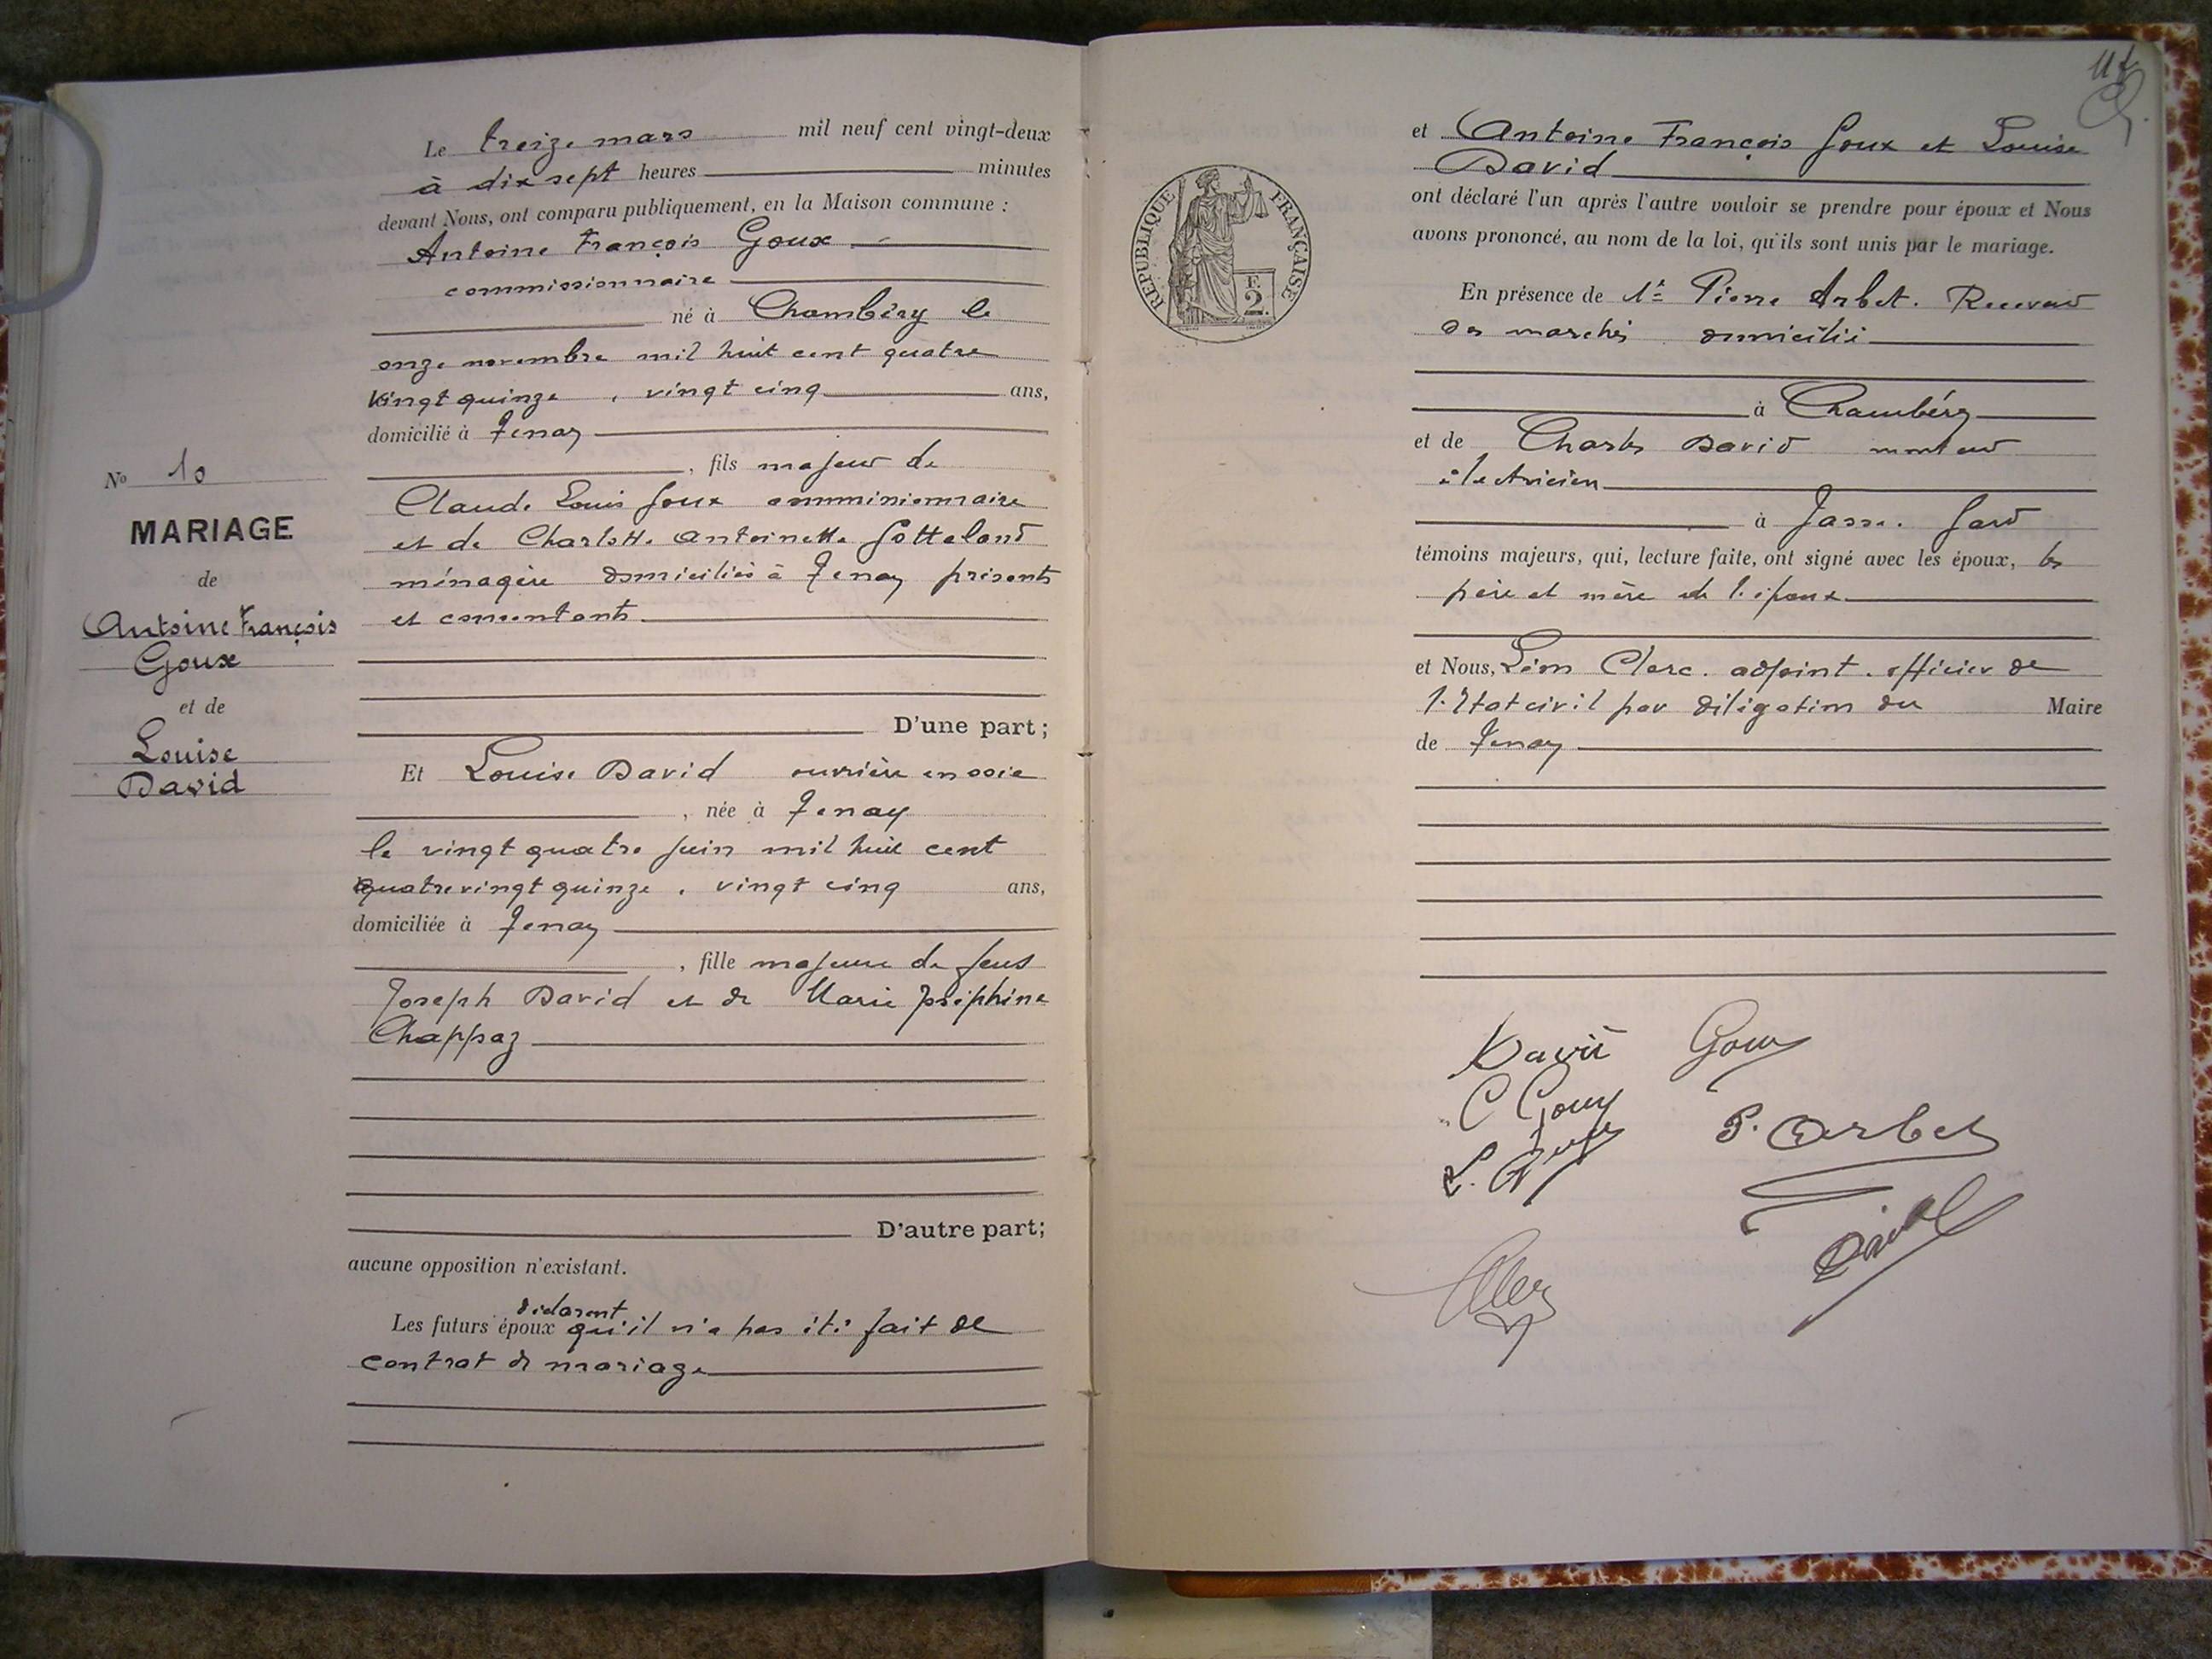 Le treize mars mil neuf cent vingt-deux
à dix sept heures minutes
devant Nous, ont comparu publiquement, en la Maison commune :
Antoine François Goux
commissionnaire
né à Chambéry le
onze novembre mil huit cent quatre
vingt quinze, vingt cinq ans,
domicilié à Tenay
, fils majeur de
Claude Louis Goux commissionnaire
et de Charlotte Antoinette Gotteland
ménagère domiciliés à Tenay présents
et consentants
D'une part;
No 10
MARIAGE
de
Antoine François
Goux
et de
Louise
David
Et Louise David ouvrière en soie
, née à Tenay
le vingt quatre juin mil huit cent
quatre vingt quinze, vingt cinq ans,
domiciliée à Tenay
, fille majeure de feus
Joseph David et de Marie Joséphine
Chappaz
D'autre part;
aucune opposition n'existant.
déclarent
Les futurs époux qu'il n'a pas été fait de
contrat de mariage
et Antoine François Goux et Louise
David
ont déclaré l'un après l'autre vouloir se prendre pour époux et Nous
avons prononcé, au nom de la loi, qu'ils sont unis par le mariage.
REPUBLIQUE FRANÇAISE
E
2.
En présence de Pierre Arbet. Receveur
des marchés domicilié
à Chambéry
et de Charles David monteur
électricien
à Gard
témoins majeurs, qui, lecture faite, ont signé avec les époux, les
père et mère de l'époux
et Nous, Léon Clerc. adjoint. officier de
l'Etat civil par délégation du Maire
de Tenay
David Goux
C Goux
P. Arbet
David